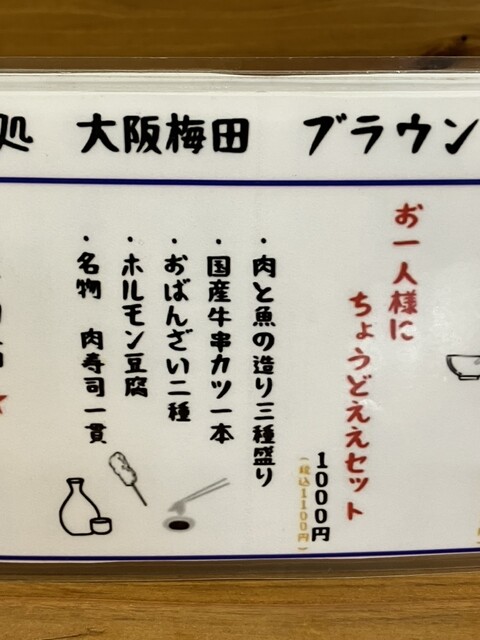 処 大阪梅田 ブラウン
お一人様に
ちょうどええセット
1000円
（税込1100円）
・肉と魚の造り三種盛り
・国産牛串カツ一本
・おばんざい二種
・ホルモン豆腐
・名物 肉寿司一貫